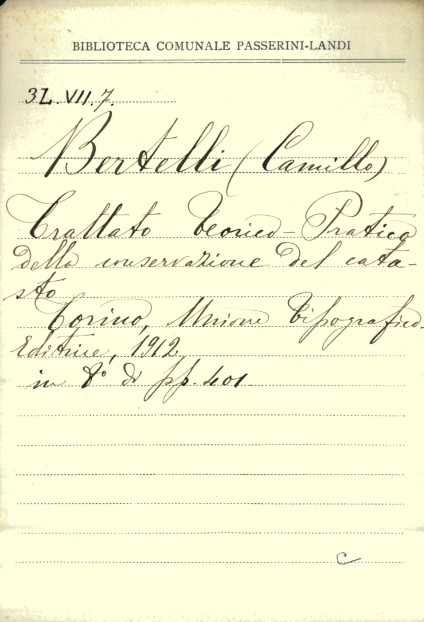 BIBLIOTECA COMUNALE PASSERINI-LANDI
3Z.VII.7.
Bertelli (Camillo)
Trattato Teorico-Pratica
della conservazione del cata-
sto
Torino, Unione Tipografico-
Editrice, 1912
in 8° di pp. 401
C